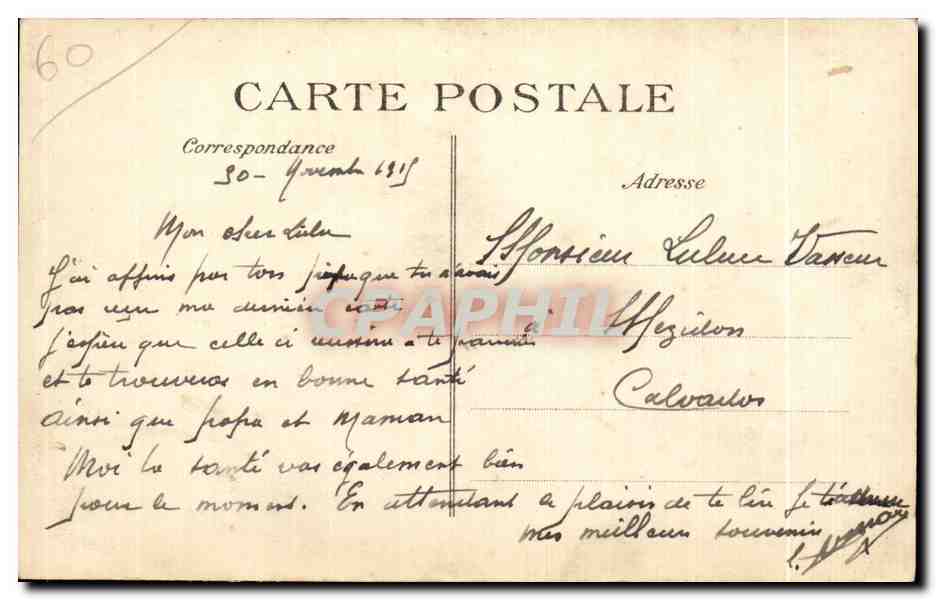 60
CARTE POSTALE
Correspondance
30 - Novembre 1915
Adresse
Mon cher Lulu
Monsieur Lulu Vasseur
à Mezidon
Calvados
J'ai appris par ton que tu n'avais
pas reçu ma dernière carte
j'espère que celle ci te
et te trouveras en bonne santé
ainsi que papa et Maman
Moi la santé vas également bien
pour le moment. En attendant le plaisir de te lire je
mes meilleurs souvenirs
CPAPHIL